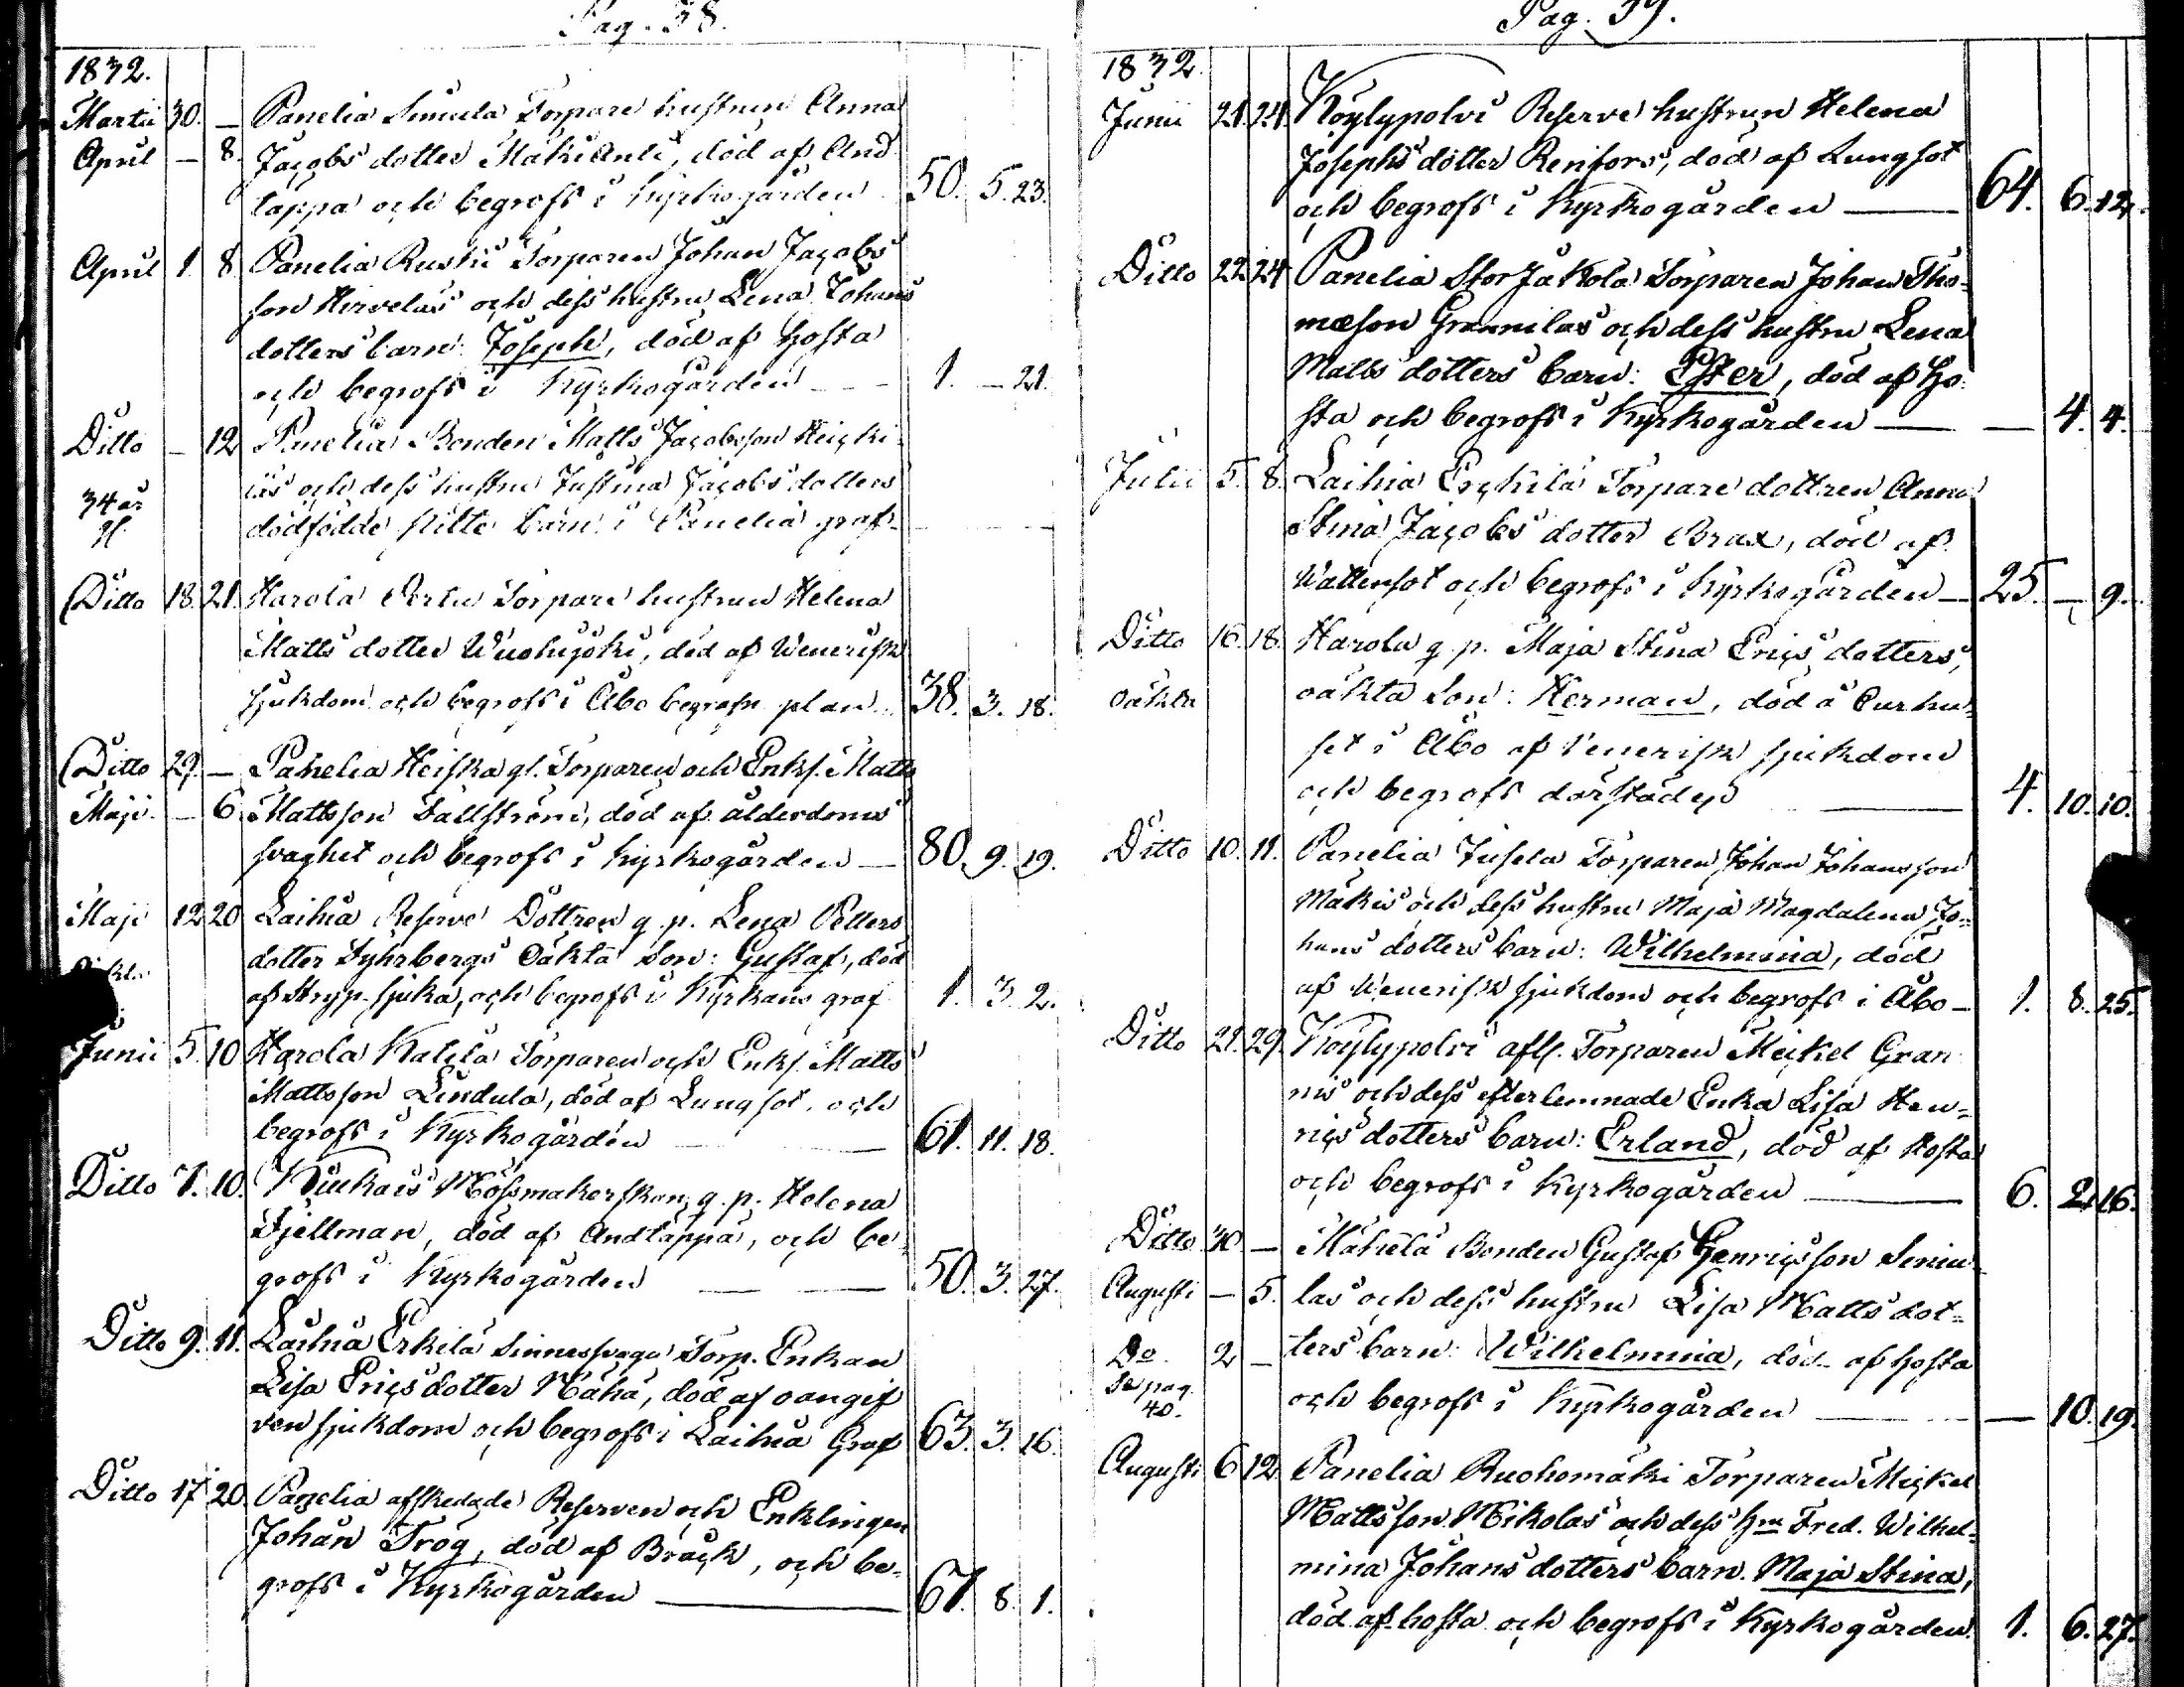 Pag. 38.
1832.
Martii 30. — Panelia Simula Torpare hustrun Anna
April — 8. Jacobs dotter MäkiAnti, död af And
täppa och begrofs i Kyrkogården 50. 5. 23.
April 1. 8. Panelia Ruski Torparen Johan Jacobs
son Hirvelas och dess hustru Lena Johans
dotters barn: Joseph, död af hosta
och begrofs i Kyrkogården — — 1. — 21.
Ditto — 12 Panelia Bonden Matts Jacobsson Heicki
34 år läs och dess hustru Justina Jacobs dotters
gl. dödfödde flitte barn i Panelia graf — — —
Ditto 18. 21. Harola Torpare hustrun Helena
Matts dotter Wuohijoki, död af Wenerisk
sjukdom och begrofs i Åbo begrafn. plan 38. 3. 18.
Ditto 29. — Panelia Heiska gl. Torparen och Enkl. Matts
Maji — 6. Mattsson Dallström, död af ålderdoms
svaghet och begrofs i kyrkogården — 80. 9. 19.
Maji 12 20 Laihia Reserve Dottren q. p. Lena Petters
dotter Dyhrbergs Oäkta Son: Gustaf, död
af Stryp-sjuka, och begrofs i Kyrkans graf 1. 3. 2.
Junii 5. 10 Harola Katila Torparen och Enkl. Matts
Mattsson Lindula, död af Lungsot, och
begrofs i Kyrkogården — — 61. 11. 18.
Ditto 7. 10. Kiukais Mössmakerskan q. p. Helena
Fjellman, död af Andtäppa, och be-
grofs i Kyrkogården — — 50. 3. 27.
Ditto 9. 11. Laihia Erkilä Sinnessvaga Torp. Enkan
Lisa Erics dotter Näha, död af oangif
ven sjukdom och begrofs i Laihia Graf 63. 3. 16.
Ditto 17 20. Panelia afskedade Reserven och Enklingen
Johan Trög, död af Bråck, och be-
grofs i Kyrkogården — 67. 8. 1.
Pag. 39.
1832.
Junii 21. 24. Köylypolvi Reserve hustrun Helena
Josephs dotter Renfors, död af Lungsot
och begrofs i Kyrkogården — 64. 6. 12.
Ditto 22. 24 Panelia Stor Jakola Torparen Johan Tho-
mæson Grannilas och dess hustru Lena
Matts dotters barn: Ester, död af ho-
sta och begrofs i Kyrkogården — — 4. 4.
Julii 5. 8. Laihia Erckilä Torpare dottren Anna
Stina Jacobs dotter Brax, död af
Wattensot och begrofs i Kyrkogården — 25. — 9.
Ditto 16. 18. Harola q. p. Maja Stina Erics dotters,
oäkta oäkta Son: Herman, död å Curhu-
set i Åbo af Venerisk sjukdom
och begrofs därstädes — 4. 10. 10.
Ditto 10. 11. Panelia Jusela Torparen Johan Johansson
Mäkis och dess hustru Maja Magdalena Jo-
hans dotters barn: Wilhelmina, död
af Wenerisk sjukdom och begrofs i Åbo — 1. 8. 25.
Ditto 21. 29. Köylypolvi afll. Torparen Meikel Gran
nis och dess efterlemnade Enka Lisa Hen-
rics dotters barn: Erland, död af Hosta
och begrofs i Kyrkogården — 6. 2. 16.
Ditto 30 — Mähälä Bonden Gustaf Henricsson Simu-
Augusti — 5. las och dess hustru Lisa Matts dot-
Do. 2 — ters barn: Wilhelmina, död af hosta
Se pag. 40. och begrofs i Kyrkogården — — 10. 19.
Augusti 6. 12. Panelia Ruohomäki Torparen Mickel
Mattsson Mikolas och dess Hru Fred. Wilhel-
mina Johans dotters barn. Maja Stina,
död af hosta och begrofs i Kyrkogården. 1. 6. 27.